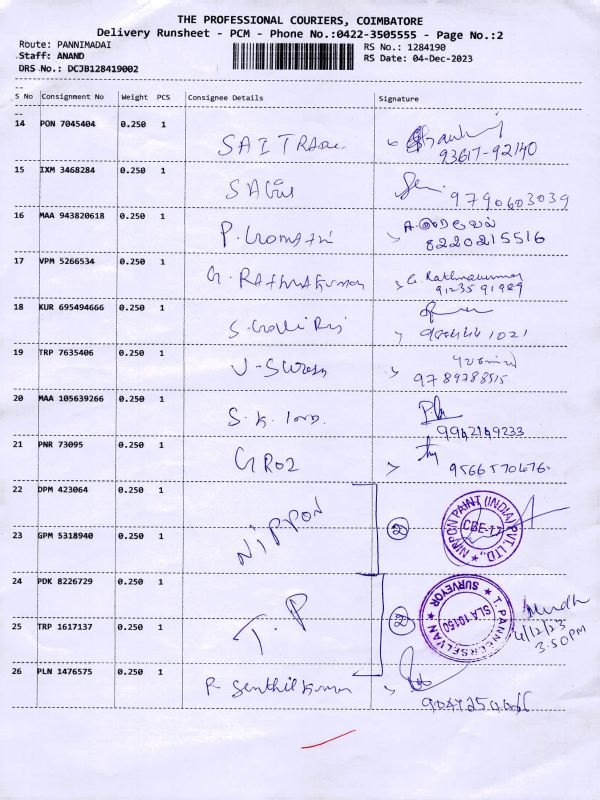 THE PROFESSIONAL COURIERS, COIMBATORE
Delivery Runsheet - PCM - Phone No.:0422-3505555 - Page No.:2
Route: PANNIMADAI
RS No.: 1284190
Staff: ANAND
RS Date: 04-Dec-2023
DRS No.: DCJB128419002
S No Consignment No Weight PCS Consignee Details Signature
14 PON 7045404 0.250 1
SAI
93617-92140
15 IXM 3468284 0.250 1
9790603039
16 MAA 943820618 0.250 1
P.
8220215516
17 VPM 5266534 0.250 1
G. Rathnakumar G. Rathnakumar
18 KUR 695494666 0.250 1
S.
19 TRP 7635406 0.250 1
9789788515
20 MAA 105639266 0.250 1
S.K.
9942149233
21 PNR 73095 0.250 1
9566570476
22 DPM 423064 0.250 1
NIPPON 2
NIPPON PAINT (INDIA) PVT. LTD.,
CBE-17
23 GPM 5318940 0.250 1
24 PDK 8226729 0.250 1
T.P 2
T. PANNEERSELVAN
SURVEYOR
SLA 10150
4/12/23
3.50PM
25 TRP 1617137 0.250 1
26 PLN 1476575 0.250 1
P. Senthil Kumar